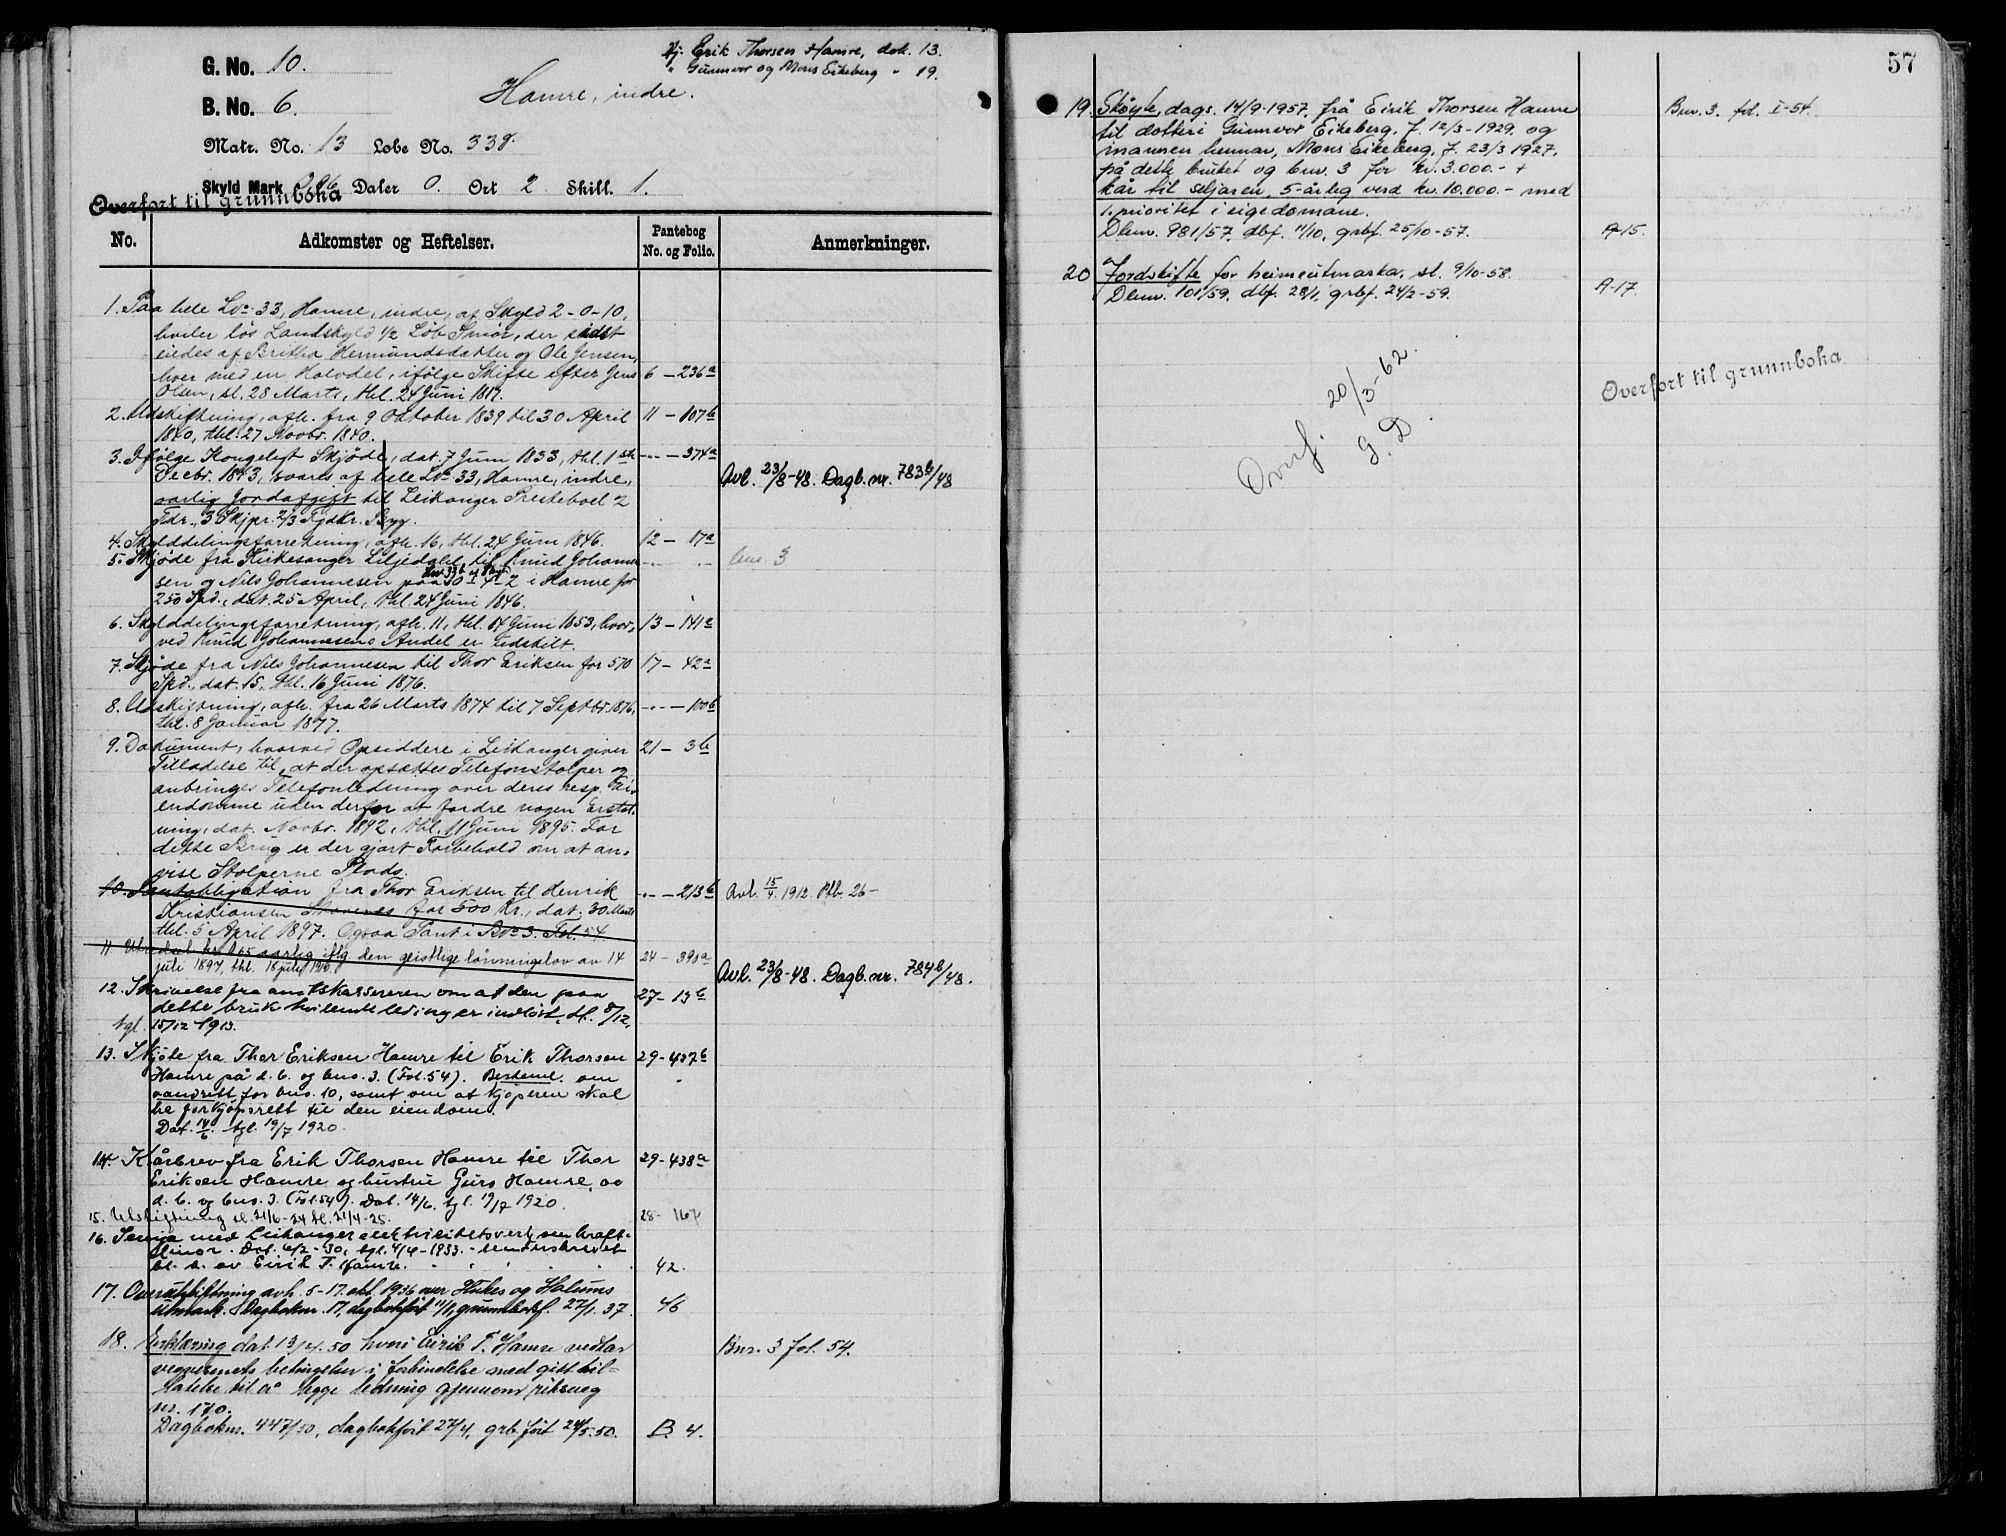 G. No. 10.
Hj: Erik Thorsen Hamre, dok. 13.
" Gunnvor og Mons Eikeberg " 19.
B. No. 6.
Hamre, indre.
Matr. No. 13 Løbe No. 338.
Skyld Mark 2,96 Daler 0. Ort 2 Skill. 1.
Overført til grunnboka
No.
Adkomster og Heftelser.
Pantebog No. og Folio.
Anmerkninger.
1. Paa hele Lno 33, Hamre, indre, af Skyld 2-0-10,
hviler løs Landskyld 1/2 Løb Smør, der sidst
eiedes af Britha Hermundsdatter og Ole Jensen,
hver med en Halvdel, ifølge Skifte efter Jens 6 - 236a
Olsen, sl. 28 Marts, thl. 24 Juni 1817.
2. Udskiftning, afh. fra 9 Oktober 1839 til 30 April 11 - 107b
1840, thl. 27 Novbr. 1840.
3. Ifølge Kongeligt Skjøde, dat. 7 Juni 1833, thl. 1ste -"- - 374a
Decbr. 1843, svares af hele Lno 33, Hamre, indre, Avl. 23/8-48. Dagb.nr. 783b/48
aarlig Jordafgift til Leikanger Presteboel 2
Tdr., 3 Skjpr. 2/3 Fjdkr. Byg.
4. Skylddelingsforretning, afh. 16, thl. 24 Juni 1846. 12 - 17a
5. Skjøde fra Kirkesanger Liljedahl til Knud Johanne- -"- "- bno. 3
sen og Nils Johannesen paa 0-4-2 i Hamre for
250 Spd., dat. 25 April, thl. 24 Juni 1846.
6. Skylddelingsforretning, afh. 11, thl. 14 Juni 1853, hvor- 13 - 141a
ved Knud Johannesens Andel er fradskilt.
7. Skjøde fra Nils Johannesen til Thor Eriksen for 570 17 - 42a
Spd., dat. 15, thl. 16 Juni 1876.
8. Udskiftning, afh. fra 26 Marts 1874 til 7 Septbr. 1876, -"- - 100b
thl. 8 Januar 1877.
9. Dokument, hvorved Opsiddere i Leikanger giver 21 - 3b
Tilladelse til, at der opsættes Telefonstolper og
anbringes Telefonledning over deres resp. Ei-
endomme uden derfor at fordre nogen Erstat-
ning, dat. Novbr. 1892, thl. 11 Juni 1895. For
dette Brug er der gjort Forbehold om at an-
vise Stolperne Plads.
10. Pantobligation fra Thor Eriksen til Henrik -"- - 213b Avl. 15/4 1912. Ptb. 26-
Kristiansen for 500 Kr., dat. 30 Marts
thl. 5 April 1897. Ogsaa Pant i Bno 3. Fol. 54
11 aarlig iflg. den geistlige lønningslov av 14 24 - 390a
juli 1897, thl. 18 juli 1910. Avl. 23/8-48. Dagb.nr. 784b/48.
12. Skrivelse fra amtskassereren om at den paa 27 - 13b
dette bruk hvilende leding er indløst, dt. 8/12,
tgl. 15/12 1913.
13. Skjøte fra Thor Eriksen Hamre til Erik Thorsen 29 - 437b
Hamre på d. b. og bno. 3. (Fol. 54). Bestemt. om
vandrett for bno. 10, samt om at kjøperen skal
ha forkjøpsrett til den eiendom.
Dat. 14/6. tgl. 19/7 1920.
14. Kårbrev fra Erik Thorsen Hamre til Thor 29 - 438a
Eriksen Hamre og hustru Guro Hamre, av
d. b. og bno. 3. (Fol. 54). Dat. 14/6. tgl. 19/7 1920.
15. Utskiftning sl. 21/6-24 tl. 21/4-25. 28 - 167
16. Semja med Leikanger elektrisitetsverk om kraft-
linor. Dat. 6/2-30, tgl. 4/4-1933. - underskrevet
bl. a. av Eirik T. Hamre. 42.
17. Overutskiftning avh. 5-17. okt. 1936 over Hukes og Halums
utmark. Dagboknr. 17, dagbokført 11/1, grunnbokf. 27/1. 37. 46
18. Erklæring dat. 13/4.50 hvori Eirik T. Hamre vedtar Bnr. 3 fol. 54.
vegvesenets betingelser i forbindelse med gitt til-
latelse til å legge ledning gjennom riksveg
nr. 170.
Dagboknr. 447/50, dagbokført 27/4, grb.ført 24/5.50. B. 4.
57
19. Skøyte, dags. 14/9-1957, frå Eirik Thorsen Hamre Bnr. 3. fol. I-54.
til dotteri Gunnvor Eikeberg, f. 12/3-1929, og
mannen hennar, Mons Eikeberg, f. 23/3 1927,
på dette bruket og bnr. 3 for kr. 3.000.- +
kår til seljaren, 5-årleg verd kr. 10.000.- med
1. prioritet i eigedomane.
Dbnr. 981/57, dbf. 11/10, grbf. 25/10-57. A-15.
20 Jordskifte for heimeutmarka, sl. 9/10-58.
Dbnr. 101/59, dbf. 28/1, grbf. 24/2-59. A-17.
Overf. 20/3-62.
G. D.
Overført til grunnboka